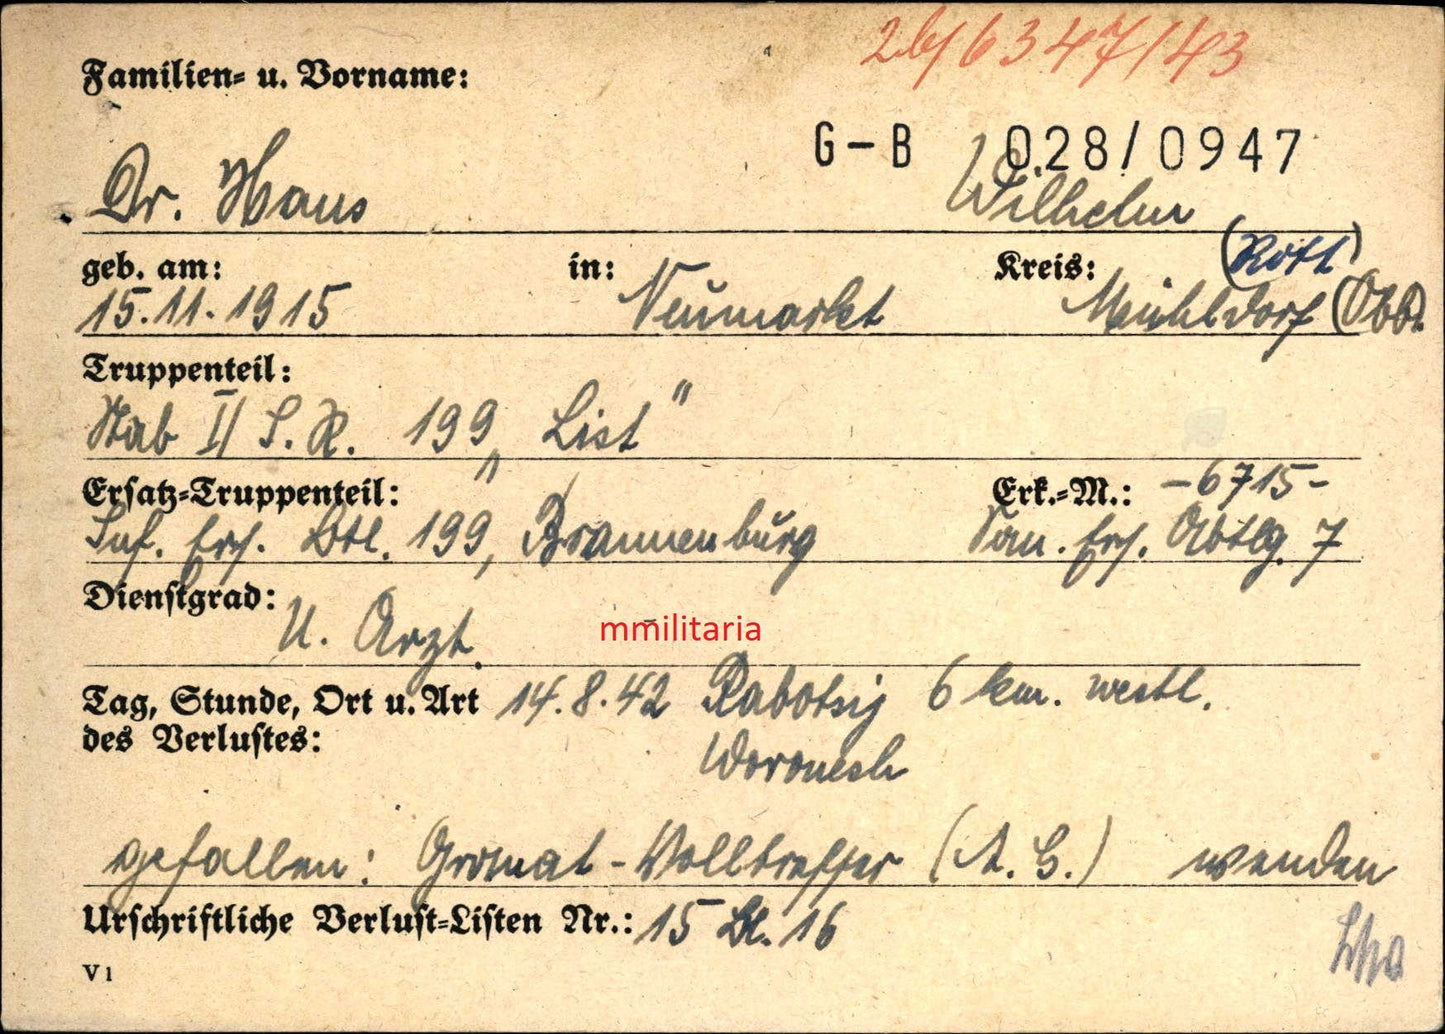 2b/6347/43
Familien- u. Vorname:
G-B 028/0947
Dr. Haus Wilhelm
geb. am: in: Kreis: (Rott)
15.11.1915 Neumarkt Mühldorf (Obb.
Truppenteil:
Stab II/ I.R. 199 „List"
Ersatz-Truppenteil: Erk.-M.: -6715-
Inf. Ers. Btl. 199, Brannenburg San. Ers. Abtlg. 7
Dienstgrad:
U. Arzt.
mmilitaria
Tag, Stunde, Ort u. Art 14.8.42 6 km. westl.
des Verlustes: Woronesh
gefallen: Granat-Volltreffer (A.G.) wenden
Urschriftliche Verlust-Listen Nr.: 15 Bl. 16
V 1